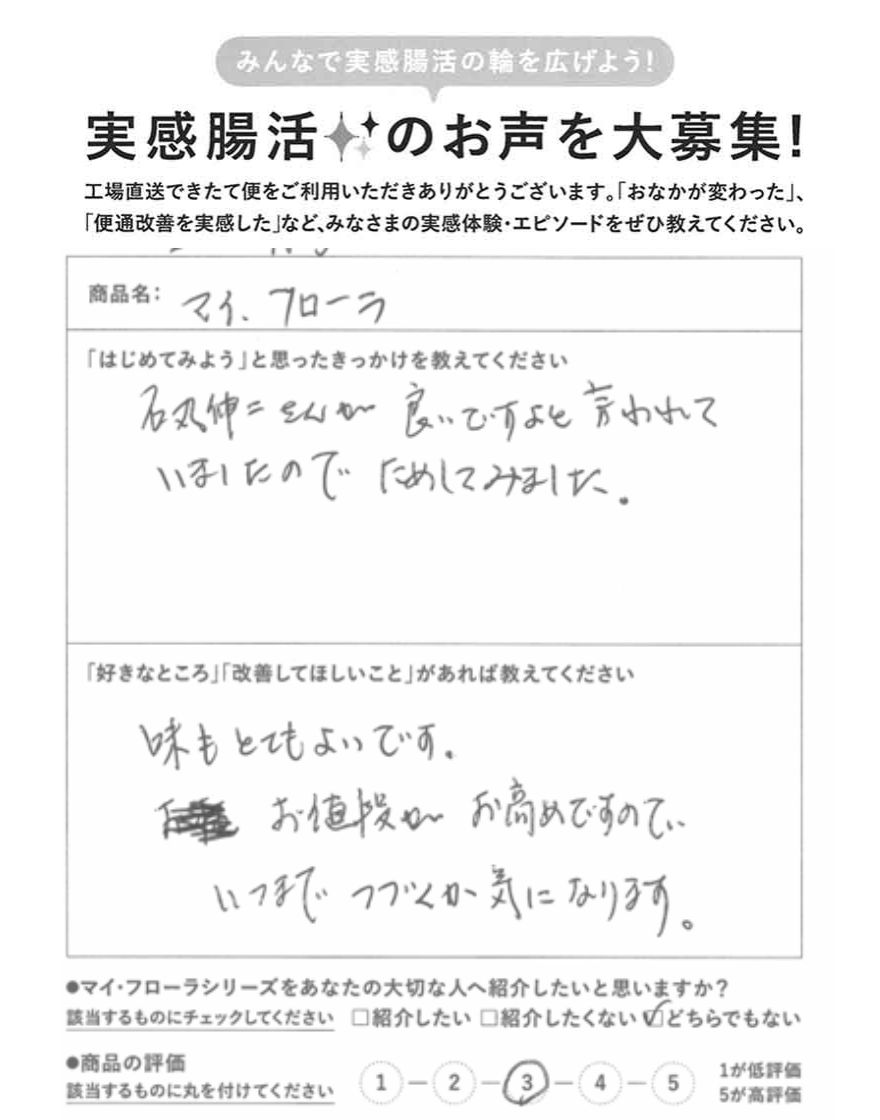 みんなで実感腸活の輪を広げよう!
実感腸活のお声を大募集!
工場直送できたて便をご利用いただきありがとうございます。「おなかが変わった」、
「便通改善を実感した」など、みなさまの実感体験・エピソードをぜひ教えてください。
商品名: マイ、フローラ
「はじめてみよう」と思ったきっかけを教えてください
石丸伸二さんが 良いですよと言われて
いましたので ためしてみました。
「好きなところ」「改善してほしいこと」があれば教えてください
味もとてもよいです。
お値段が お高めですので、
いつまで つづくか気になります。
●マイ・フローラシリーズをあなたの大切な人へ紹介したいと思いますか?
該当するものにチェックしてください □紹介したい □紹介したくない ☑どちらでもない
●商品の評価
該当するものに丸を付けてください 1 - 2 - 3 - 4 - 5 1が低評価
5が高評価